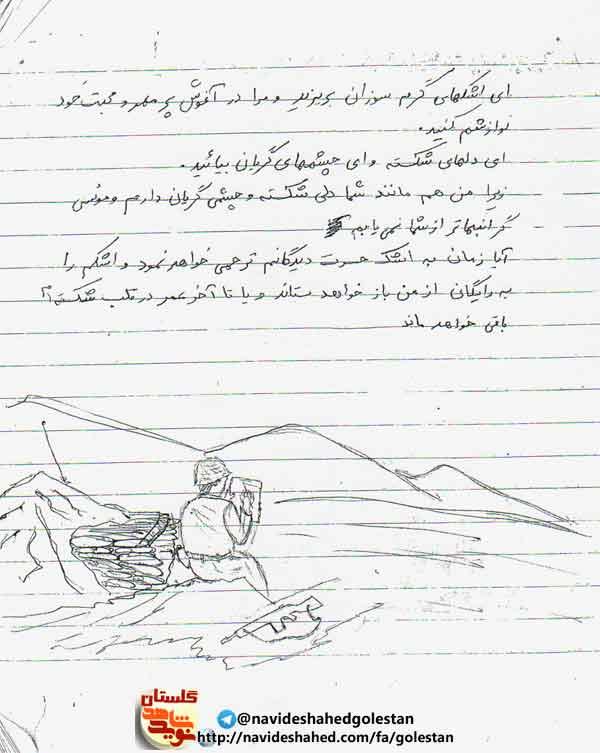 ای اشکهای گرم سوزان بریزید و مرا در آغوش پر مهر و محبت خود
نوازشم کنید.
ای دلهای شکسته و ای چشمهای گریان بیائید.
زیرا من هم مانند شما دلی شکسته و چشمی گریان دارم و مونسی
گرانبهاتر از شما نمی یابم
آیا زمان به اشک حسرت دیدگانم ترحمی خواهد نمود و اشکم را
به رایگانی از من باز خواهد ستاند و یا تا آخر عمر در قلب شکسته ام
باقی خواهد ماند
گلستان
نوید شاهد
@navideshahedgolestan
http://navideshahed.com/fa/golestan